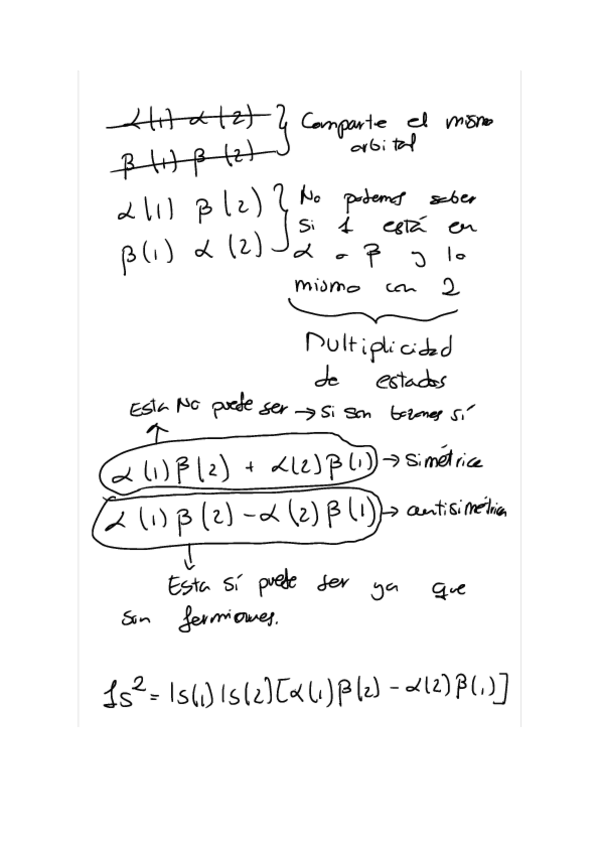 α(1) α(2) } Comparte el mismo
β(1) β(2) orbital
α(1) β(2) } No podemos saber
si 1 está en
β(1) α(2) α o β y lo
mismo con 2
Multiplicidad
de estados
Esta No puede ser → si son bosones sí
α(1)β(2) + α(2)β(1) → simétrica
α(1)β(2) - α(2)β(1) → antisimétrica
Esta sí puede ser ya que
son fermiones.
1s² = 1s(1) 1s(2) [α(1)β(2) - α(2)β(1)]